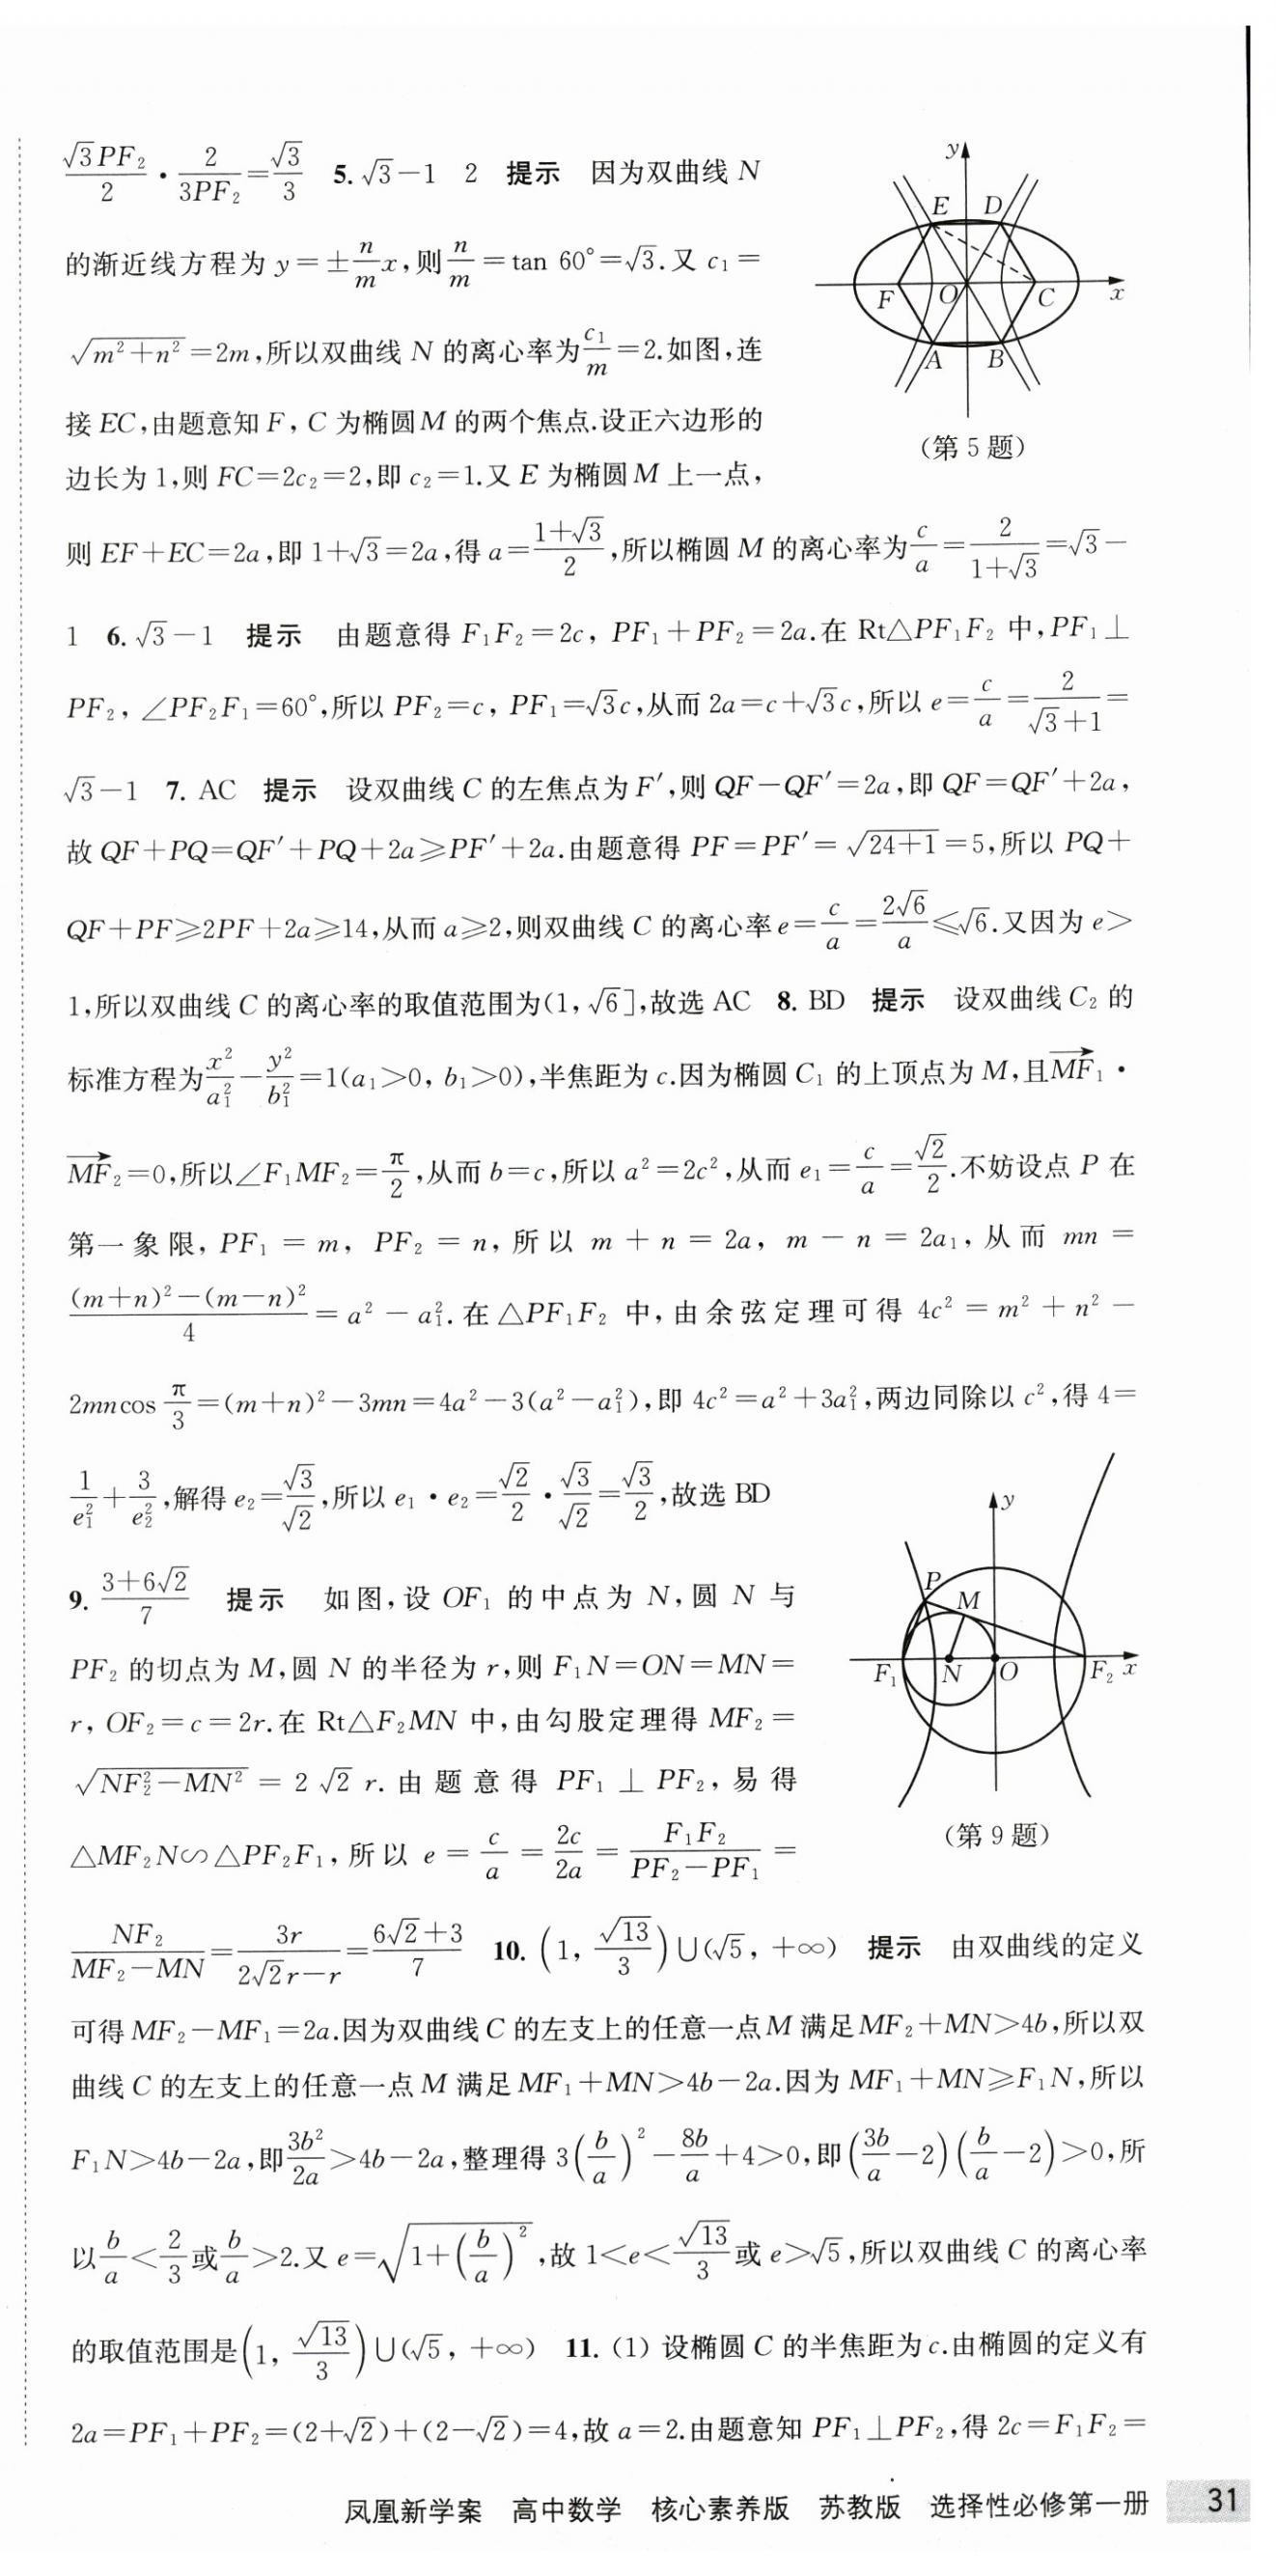 √3PF₂/2 · 2/(3PF₂) = √3/3  5. √3−1  2  提示  因为双曲线 N
的渐近线方程为 y=±(n/m)x,则 n/m=tan 60°=√3.又 c₁=
√(m²+n²)=2m,所以双曲线 N 的离心率为 c₁/m=2.如图,连
接 EC,由题意知 F, C 为椭圆 M 的两个焦点.设正六边形的
边长为 1,则 FC=2c₂=2,即 c₂=1.又 E 为椭圆 M 上一点,
y
E D
F O C x
A B
(第 5 题)
则 EF+EC=2a,即 1+√3=2a,得 a=(1+√3)/2,所以椭圆 M 的离心率为 c/a=2/(1+√3)=√3−
1  6. √3−1  提示  由题意得 F₁F₂=2c, PF₁+PF₂=2a.在 Rt△PF₁F₂ 中,PF₁⊥
PF₂, ∠PF₂F₁=60°,所以 PF₂=c, PF₁=√3c,从而 2a=c+√3c,所以 e=c/a=2/(√3+1)=
√3−1  7. AC  提示  设双曲线 C 的左焦点为 F′,则 QF−QF′=2a,即 QF=QF′+2a,
故 QF+PQ=QF′+PQ+2a≥PF′+2a.由题意得 PF=PF′=√(24+1)=5,所以 PQ+
QF+PF≥2PF+2a≥14,从而 a≥2,则双曲线 C 的离心率 e=c/a=2√6/a≤√6.又因为 e>
1,所以双曲线 C 的离心率的取值范围为(1, √6],故选 AC  8. BD  提示  设双曲线 C₂ 的
标准方程为 x²/a₁²−y²/b₁²=1(a₁>0, b₁>0),半焦距为 c.因为椭圆 C₁ 的上顶点为 M,且→MF₁·
→MF₂=0,所以∠F₁MF₂=π/2,从而 b=c,所以 a²=2c²,从而 e₁=c/a=√2/2.不妨设点 P 在
第一象限, PF₁=m, PF₂=n,所以 m+n=2a, m−n=2a₁,从而 mn=
((m+n)²−(m−n)²)/4=a²−a₁².在△PF₁F₂ 中,由余弦定理可得 4c²=m²+n²−
2mncos π/3=(m+n)²−3mn=4a²−3(a²−a₁²),即 4c²=a²+3a₁²,两边同除以 c²,得 4=
1/e₁²+3/e₂²,解得 e₂=√3/√2,所以 e₁·e₂=√2/2·√3/√2=√3/2,故选 BD
9. (3+6√2)/7  提示  如图,设 OF₁ 的中点为 N,圆 N 与
PF₂ 的切点为 M,圆 N 的半径为 r,则 F₁N=ON=MN=
r, OF₂=c=2r.在 Rt△F₂MN 中,由勾股定理得 MF₂=
√(NF₂²−MN²)=2√2 r.由题意得 PF₁⊥PF₂,易得
△MF₂N∽△PF₂F₁,所以 e=c/a=2c/2a=F₁F₂/(PF₂−PF₁)=
y
P
M
F₁ N O F₂ x
(第 9 题)
NF₂/(MF₂−MN)=3r/(2√2r−r)=(6√2+3)/7  10. (1, √13/3)∪(√5, +∞)  提示  由双曲线的定义
可得 MF₂−MF₁=2a.因为双曲线 C 的左支上的任意一点 M 满足 MF₂+MN>4b,所以双
曲线 C 的左支上的任意一点 M 满足 MF₁+MN>4b−2a.因为 MF₁+MN≥F₁N,所以
F₁N>4b−2a,即 3b²/2a>4b−2a,整理得 3(b/a)²−8b/a+4>0,即(3b/a−2)(b/a−2)>0,所
以 b/a<2/3 或 b/a>2.又 e=√(1+(b/a)²),故 1<e<√13/3 或 e>√5,所以双曲线 C 的离心率
的取值范围是(1, √13/3)∪(√5, +∞)  11. (1) 设椭圆 C 的半焦距为 c.由椭圆的定义有
2a=PF₁+PF₂=(2+√2)+(2−√2)=4,故 a=2.由题意知 PF₁⊥PF₂,得 2c=F₁F₂=
凤凰新学案  高中数学  核心素养版  苏教版  选择性必修第一册  31